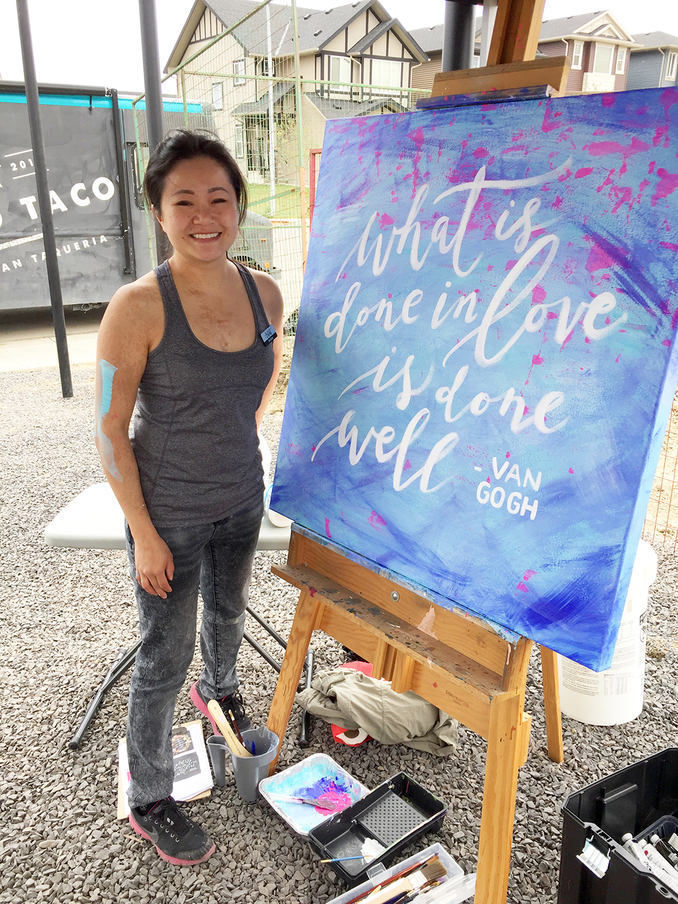 TACO
TAQUERIA
What is
done in love
is done
well
- VAN
GOGH